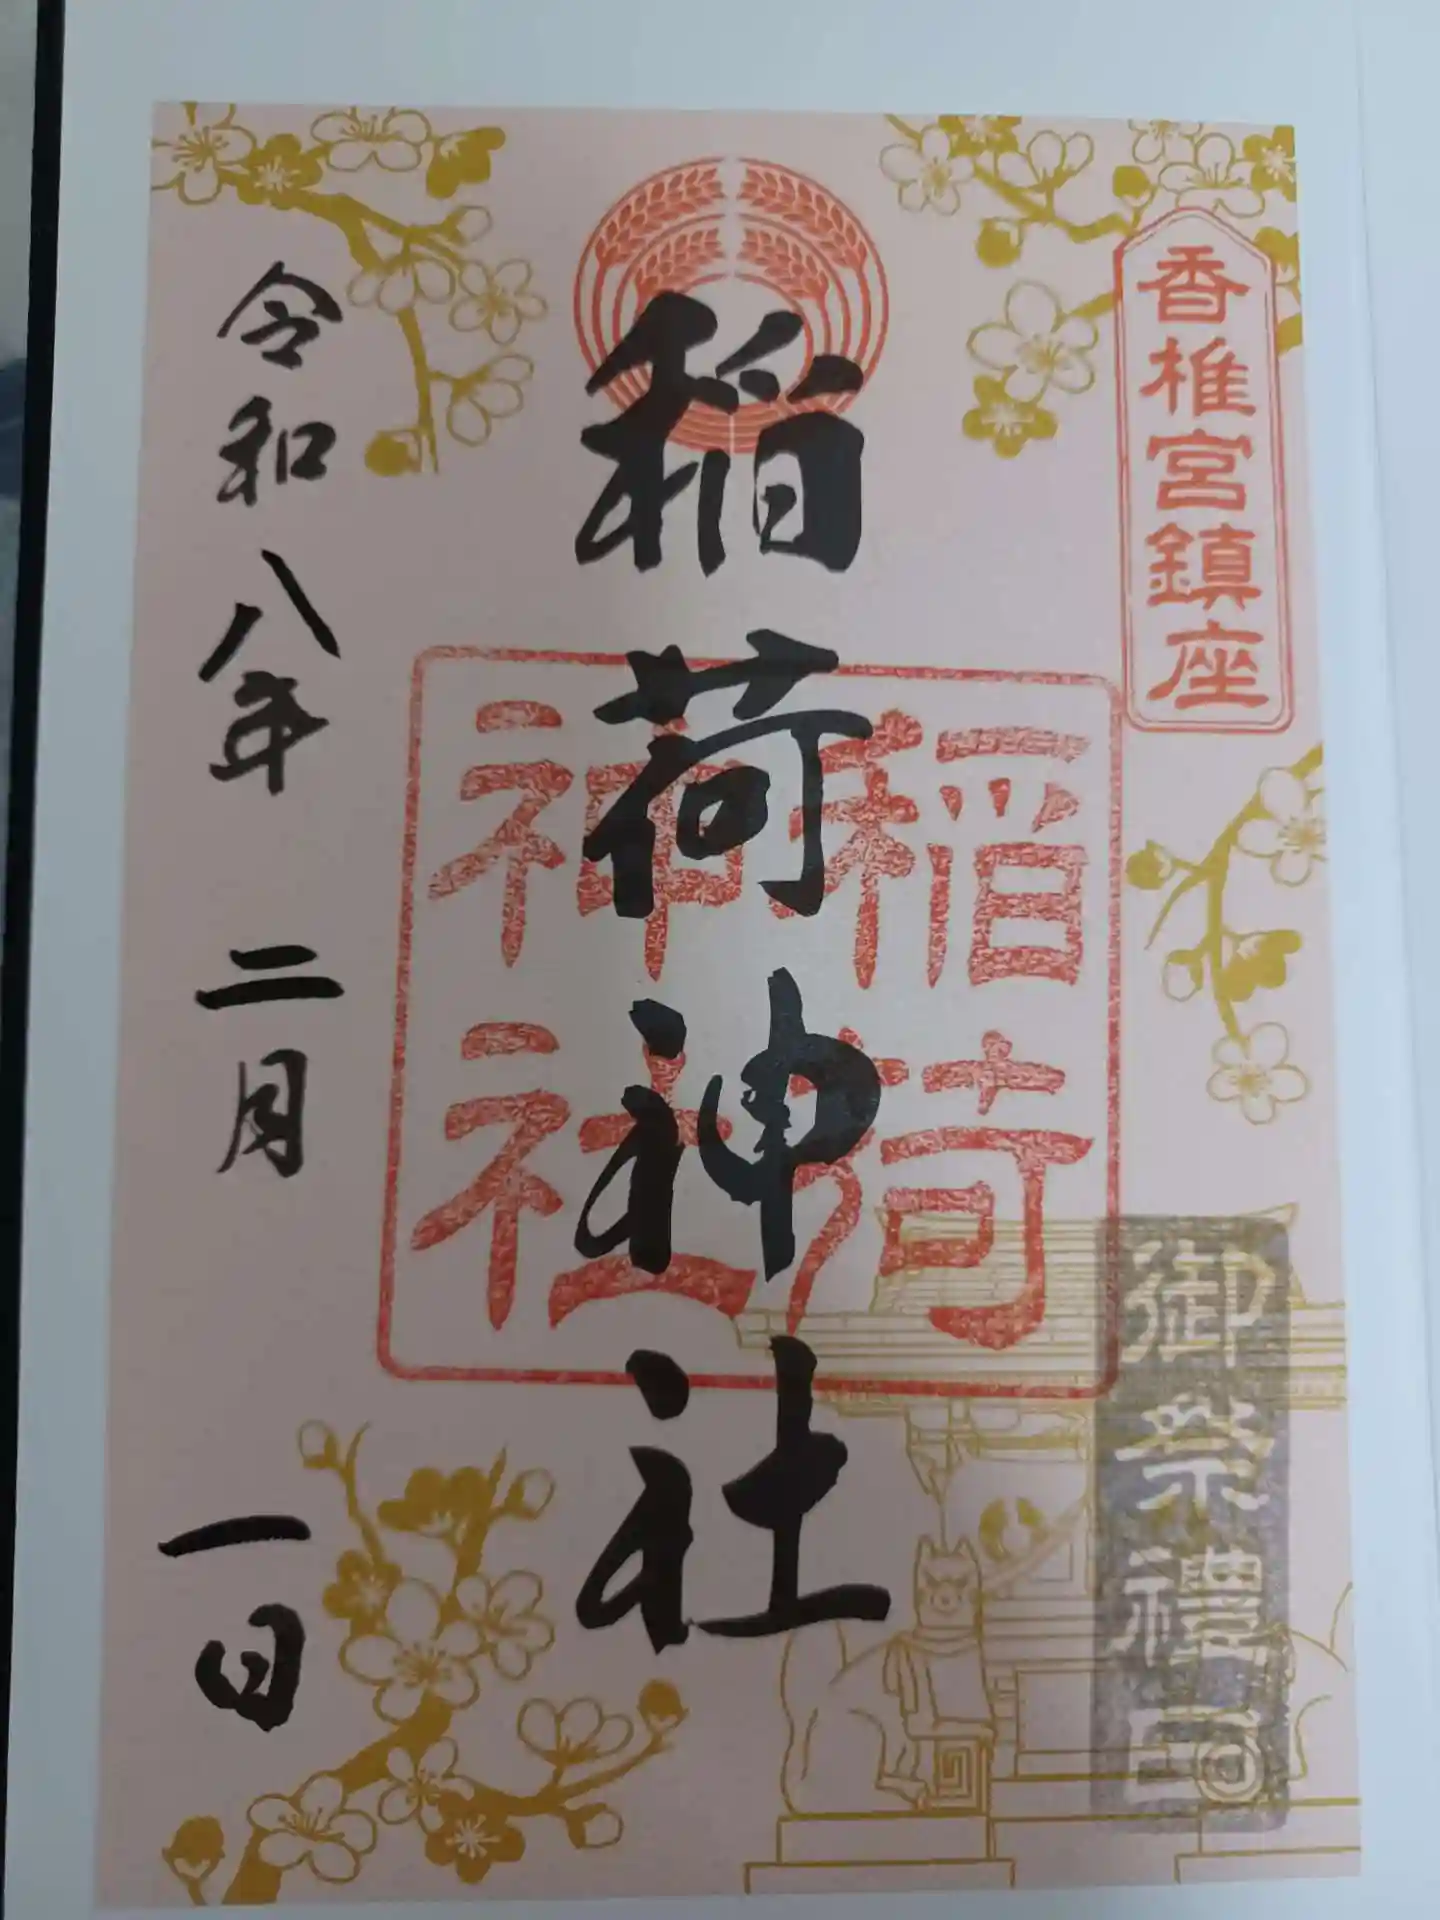 香椎宮鎮座
御祭禮日
稲荷神社
稲荷
神社
令和八年二月一日